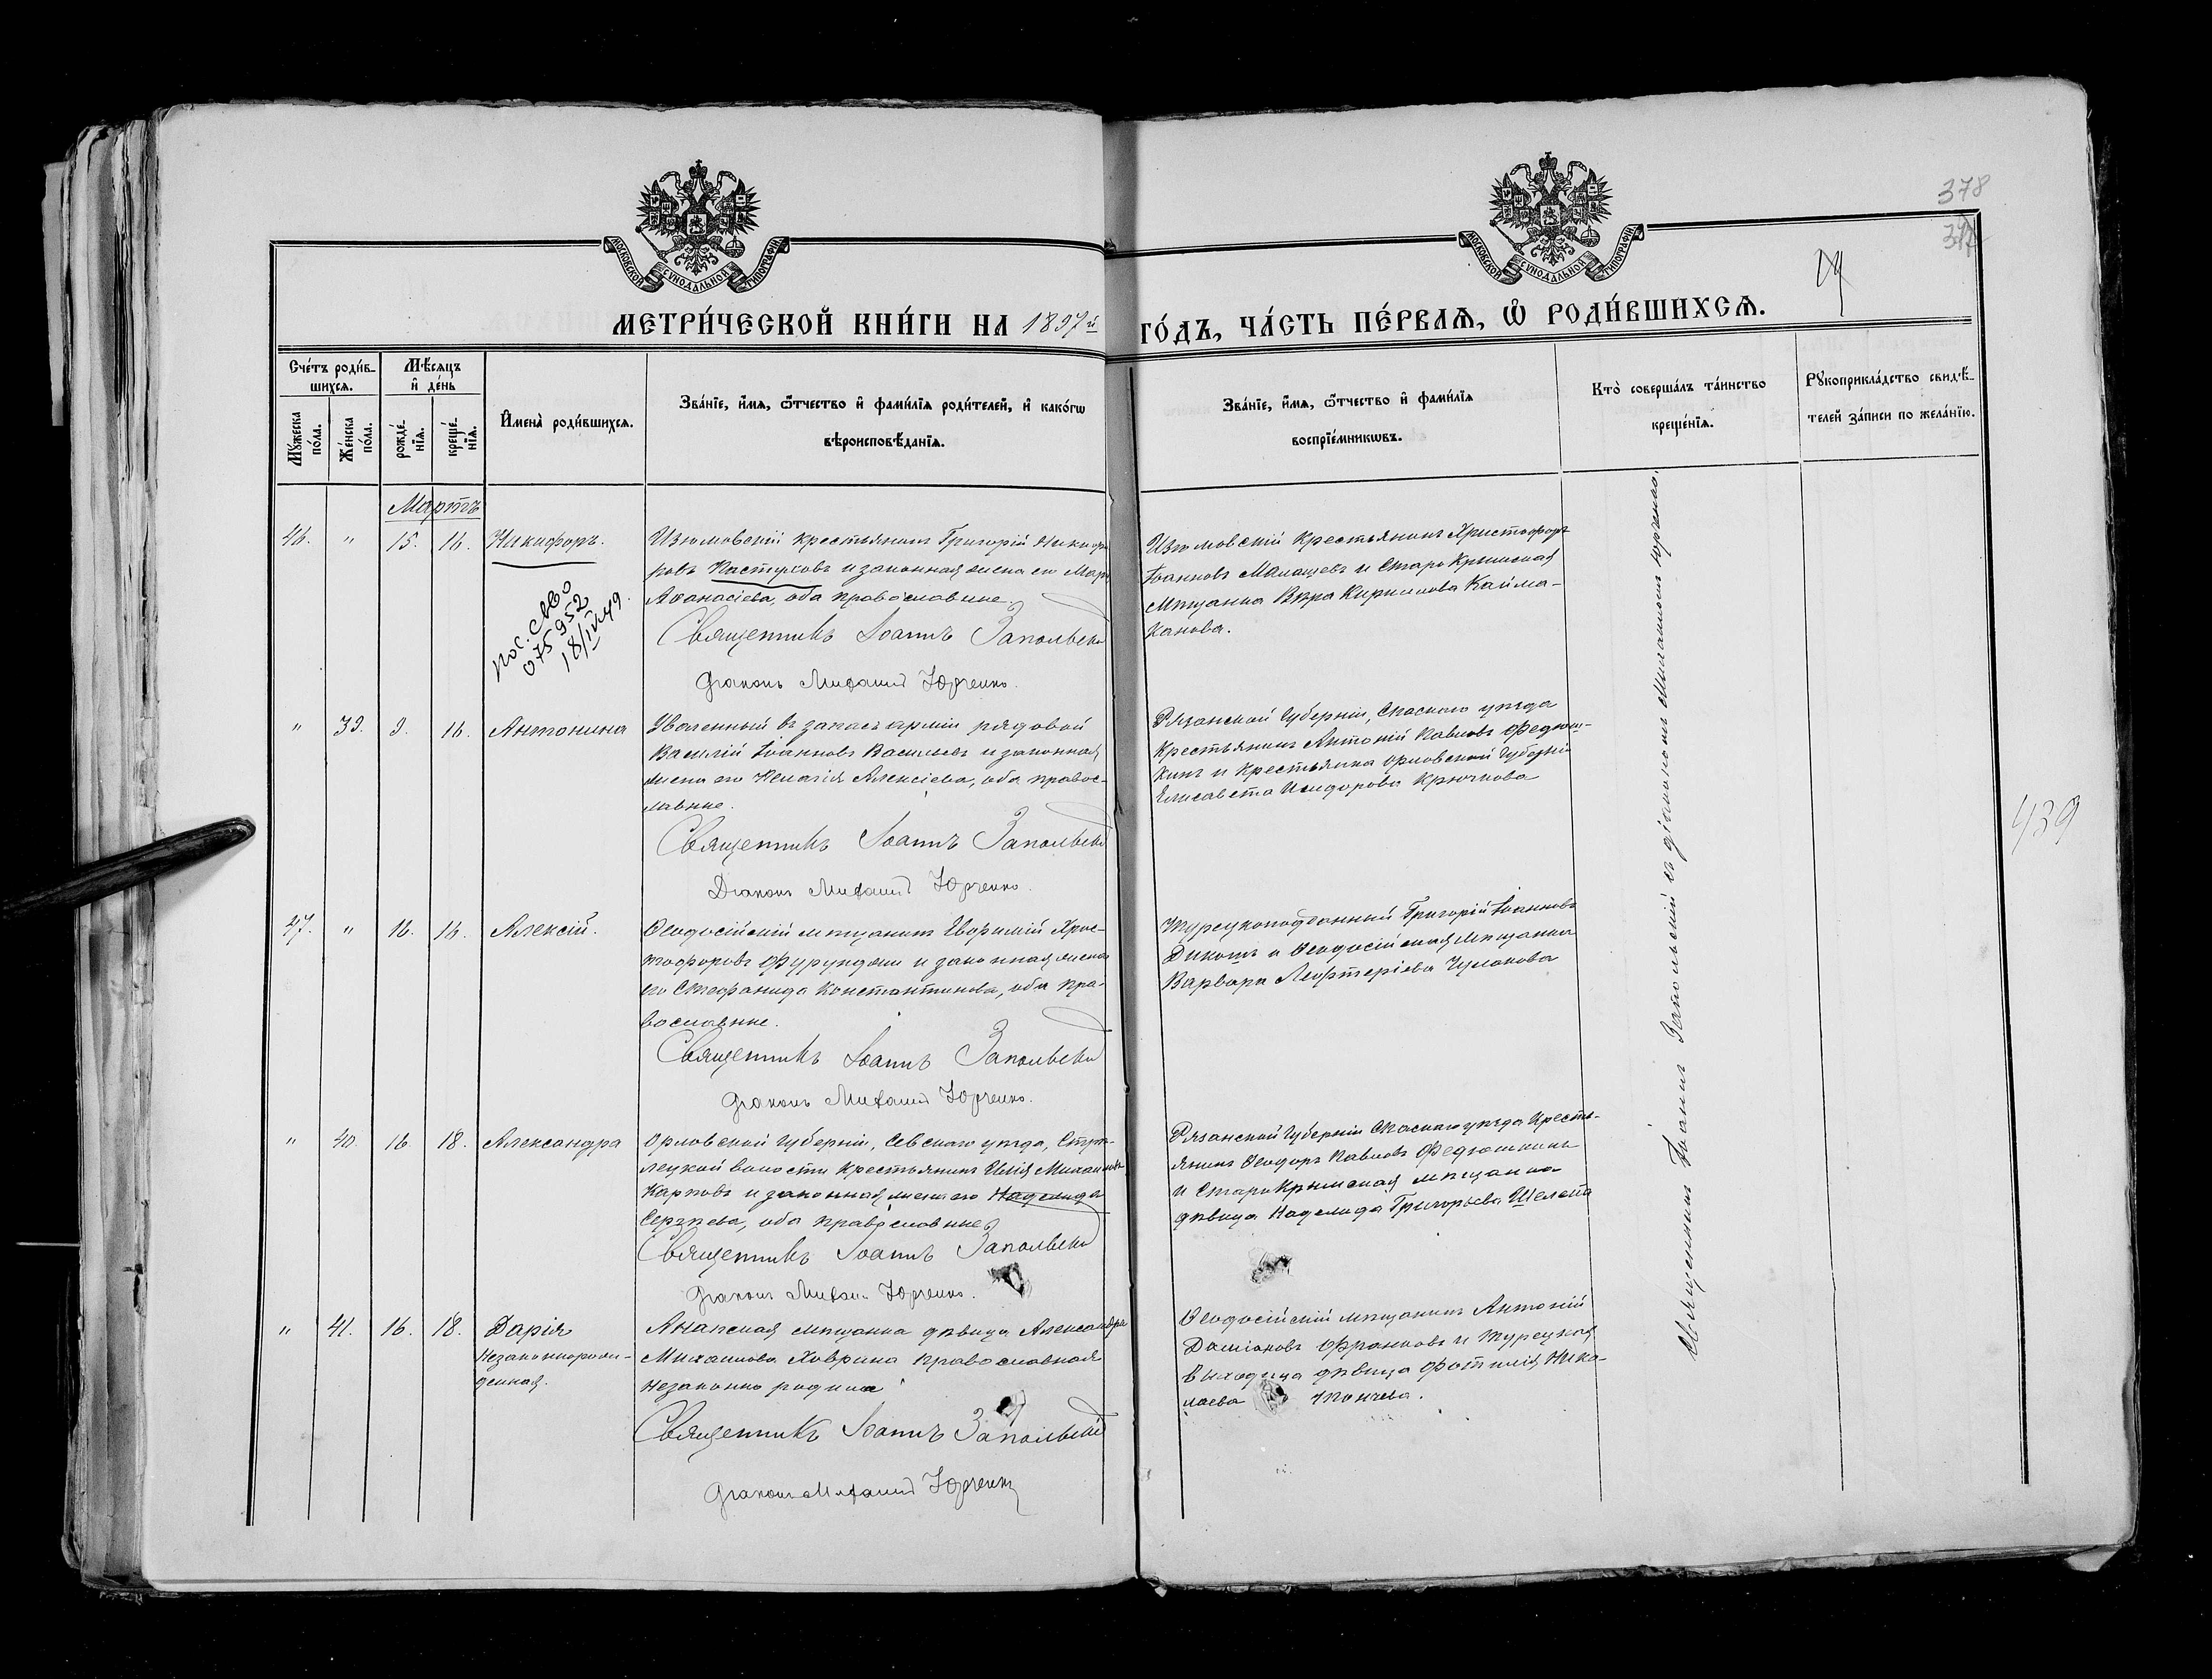 378
317
МОСКОВСКОЙ СѴНОДАЛЬНОЙ ТИПОГРАФІИ
МОСКОВСКОЙ СѴНОДАЛЬНОЙ ТИПОГРАФІИ
МЕТРИ́ЧЕСКОЙ КНИ́ГИ НА 1897й ГО́ДЪ, ЧА́СТЬ ПЕ́РВАѦ, Ѽ РОДИ́ВШИХСѦ.
Сче́тъ роди́в-
шихсѧ.
Мѣ́сѧцъ
и҆ де́нь
Мꙋ́жеска по́ла.
Же́нска по́ла.
рожде́нїѧ.
креще́нїѧ.
И҆мена̀ роди́вшихсѧ.
Зва́нїе, и҆́мѧ, ѻ҆́тчество и҆ фами́лїѧ роди́телей, и҆ како́гѡ
вѣроисповѣ́данїѧ.
Зва́нїе, и҆́мѧ, ѻ҆́тчество и҆ фами́лїѧ
воспрїе́мникѡвъ.
Кто̀ соверша́лъ та́инство
креще́нїѧ.
Рꙋкоприкла́дство свидѣ́-
телей за́писи по жела́нїю.
Мартъ
46. " 15. 16. Никифоръ.
Изюмовскій крестьянинъ Григорій Никифо
ровъ Пастуховъ и законная жена его Мар
Аѳанасіева, оба православные.
Священникъ Іоаннъ Запольскі
Діаконъ Михаилъ Юрченко.
075952
18/IV 49.
Изюмовскій крестьянинъ Христофоръ
Іоанновъ Малащевъ и Старо Крымская
мѣщанка Вѣра Кириллова Кайма-
канова.
" 39. 9. 16. Антонина
Уволенный въ запасъ арміи рядовой
Василій Іоанновъ Васильевъ и законная
жена его Пелагія Алексіева, оба правос-
лавные.
Священникъ Іоаннъ Запольскі
Діаконъ Михаилъ Юрченко.
Рязанской губерніи, Спаскаго уѣзда
крестьянинъ Антоній Павловъ Федюш-
кинъ и крестьянка Орловской губерніи
Елисавета Исидорова Крючкова
47. " 16. 16. Алексій.
Ѳеодосійскій мѣщанинъ Евфимій Хрис-
тофоровъ Фурунджи и законная жена
его Стефанида Константинова, оба пра-
вославные.
Священникъ Іоаннъ Запольскі
Діаконъ Михаилъ Юрченко.
Турецкоподданный Григорій Іоанновъ
Дикошъ и Ѳеодосійская мѣщанка
Варвара Леѳтеріева Чулакова
" 40. 16 18. Александра
Орловской губерніи, Севскаго уѣзда, Стрѣ-
лецкой волости крестьянинъ Илія Михаиловъ
Карповъ и законная жена его Надежда
Сергѣева, оба православные
Священникъ Іоаннъ Запольскі
Діаконъ Михаилъ Юрченко.
Рязанской губерніи Спаскаго уѣзда кресть-
янинъ Ѳеодоръ Павловъ Федюшкинъ
и Старокрымская мѣщанка
дѣвица Надежда Григорьева Шелепа
" 41. 16. 18. Дарія
Незаконнорож-
денная.
Анапская мѣщанка дѣвица Александра
Михаилова Ховрина православная
незаконно родила
Священникъ Іоаннъ Запольскій
Діаконъ Михаилъ Юрченко
Ѳеодосійскій мѣщанинъ Антоній
Даміановъ Франковъ и турецкая
выходица дѣвица Фотинія Нико-
лаева
Священникъ Іоаннъ Запольскій съ діакономъ Михаиломъ Юрченко.
439